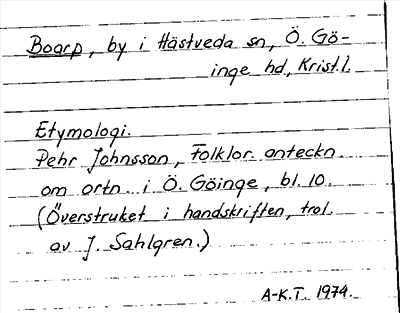 Boarp, by i Hästveda sn, Ö. Gö-
inge hd, Krist. l.
Etymologi.
Pehr Johnsson, Folklor. anteckn.
om ortn. i Ö. Göinge, bl. 10.
(Överstruket i handskriften, trol.
av J. Sahlgren.)
A-K.T. 1974.